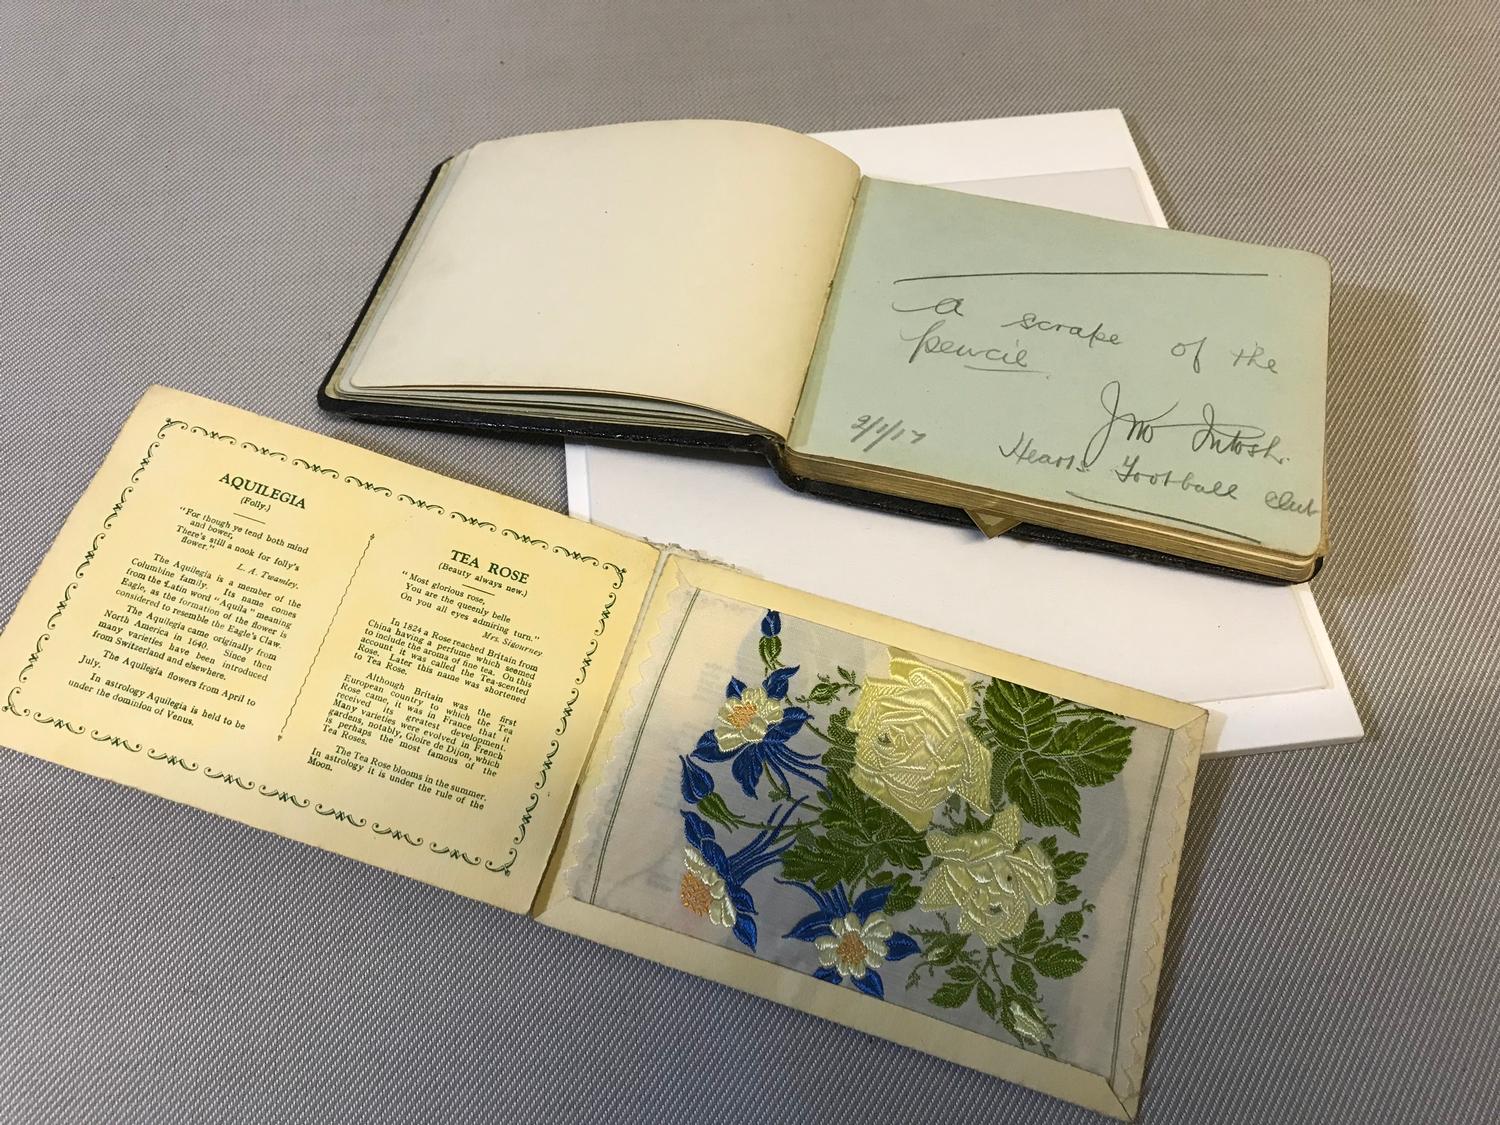 a scrape of the
pencil
J Mc Intosh.
9/1/17
Hearts Football Club
AQUILEGIA
(Folly.)
"For though ye tend both mind
and bower,
There's still a nook for folly's
flower."
L. A. Twamley.
The Aquilegia is a member of the
Columbine family. Its name comes
from the Latin word "Aquila" meaning
Eagle, as the formation of the flower is
considered to resemble the Eagle's Claw.
The Aquilegia came originally from
North America in 1640. Since then
many varieties have been introduced
from Switzerland and elsewhere.
The Aquilegia flowers from April to
July.
In astrology Aquilegia is held to be
under the dominion of Venus.
TEA ROSE
(Beauty always new.)
"Most glorious rose,
You are the queenly belle
On you all eyes admiring turn."
Mrs. Sigourney
In 1824 a Rose reached Britain from
China having a perfume which seemed
to include the aroma of fine tea. On this
account, it was called the Tea-scented
Rose. Later this name was shortened
to Tea Rose.
Although Britain was the first
European country to which the Tea
Rose came, it was in France that it
received its greatest development.
Many varieties were evolved in French
gardens, notably, Gloire de Dijon, which
is perhaps the most famous of the
Tea Roses.
The Tea Rose blooms in the summer.
In astrology it is under the rule of the
Moon.